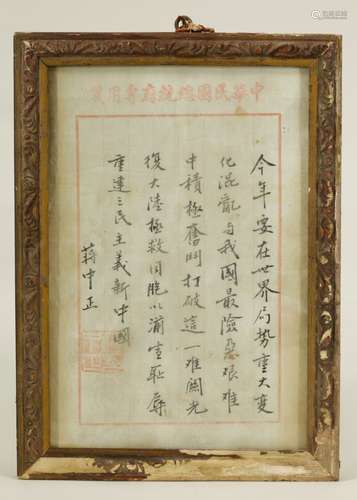 中華民國總統府專用箋
今年要在世界局勢重大變
化混亂與我國最險惡艱難
中積極奮鬥打破這一難關光
復大陸拯救同胞以湔雪恥辱
重建三民主義新中國
蔣中正